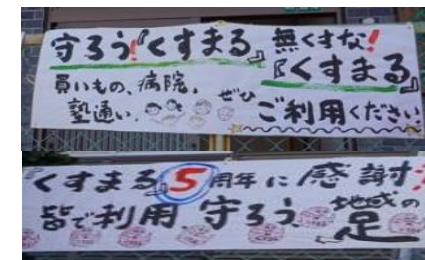 守ろう!『くすまる』 無くすな!
『くすまる』
買いもの、病院、
塾通い、 ぜひ ご利用ください
『くすまる』5周年に感謝!
皆で利用 守ろう 地域の
足